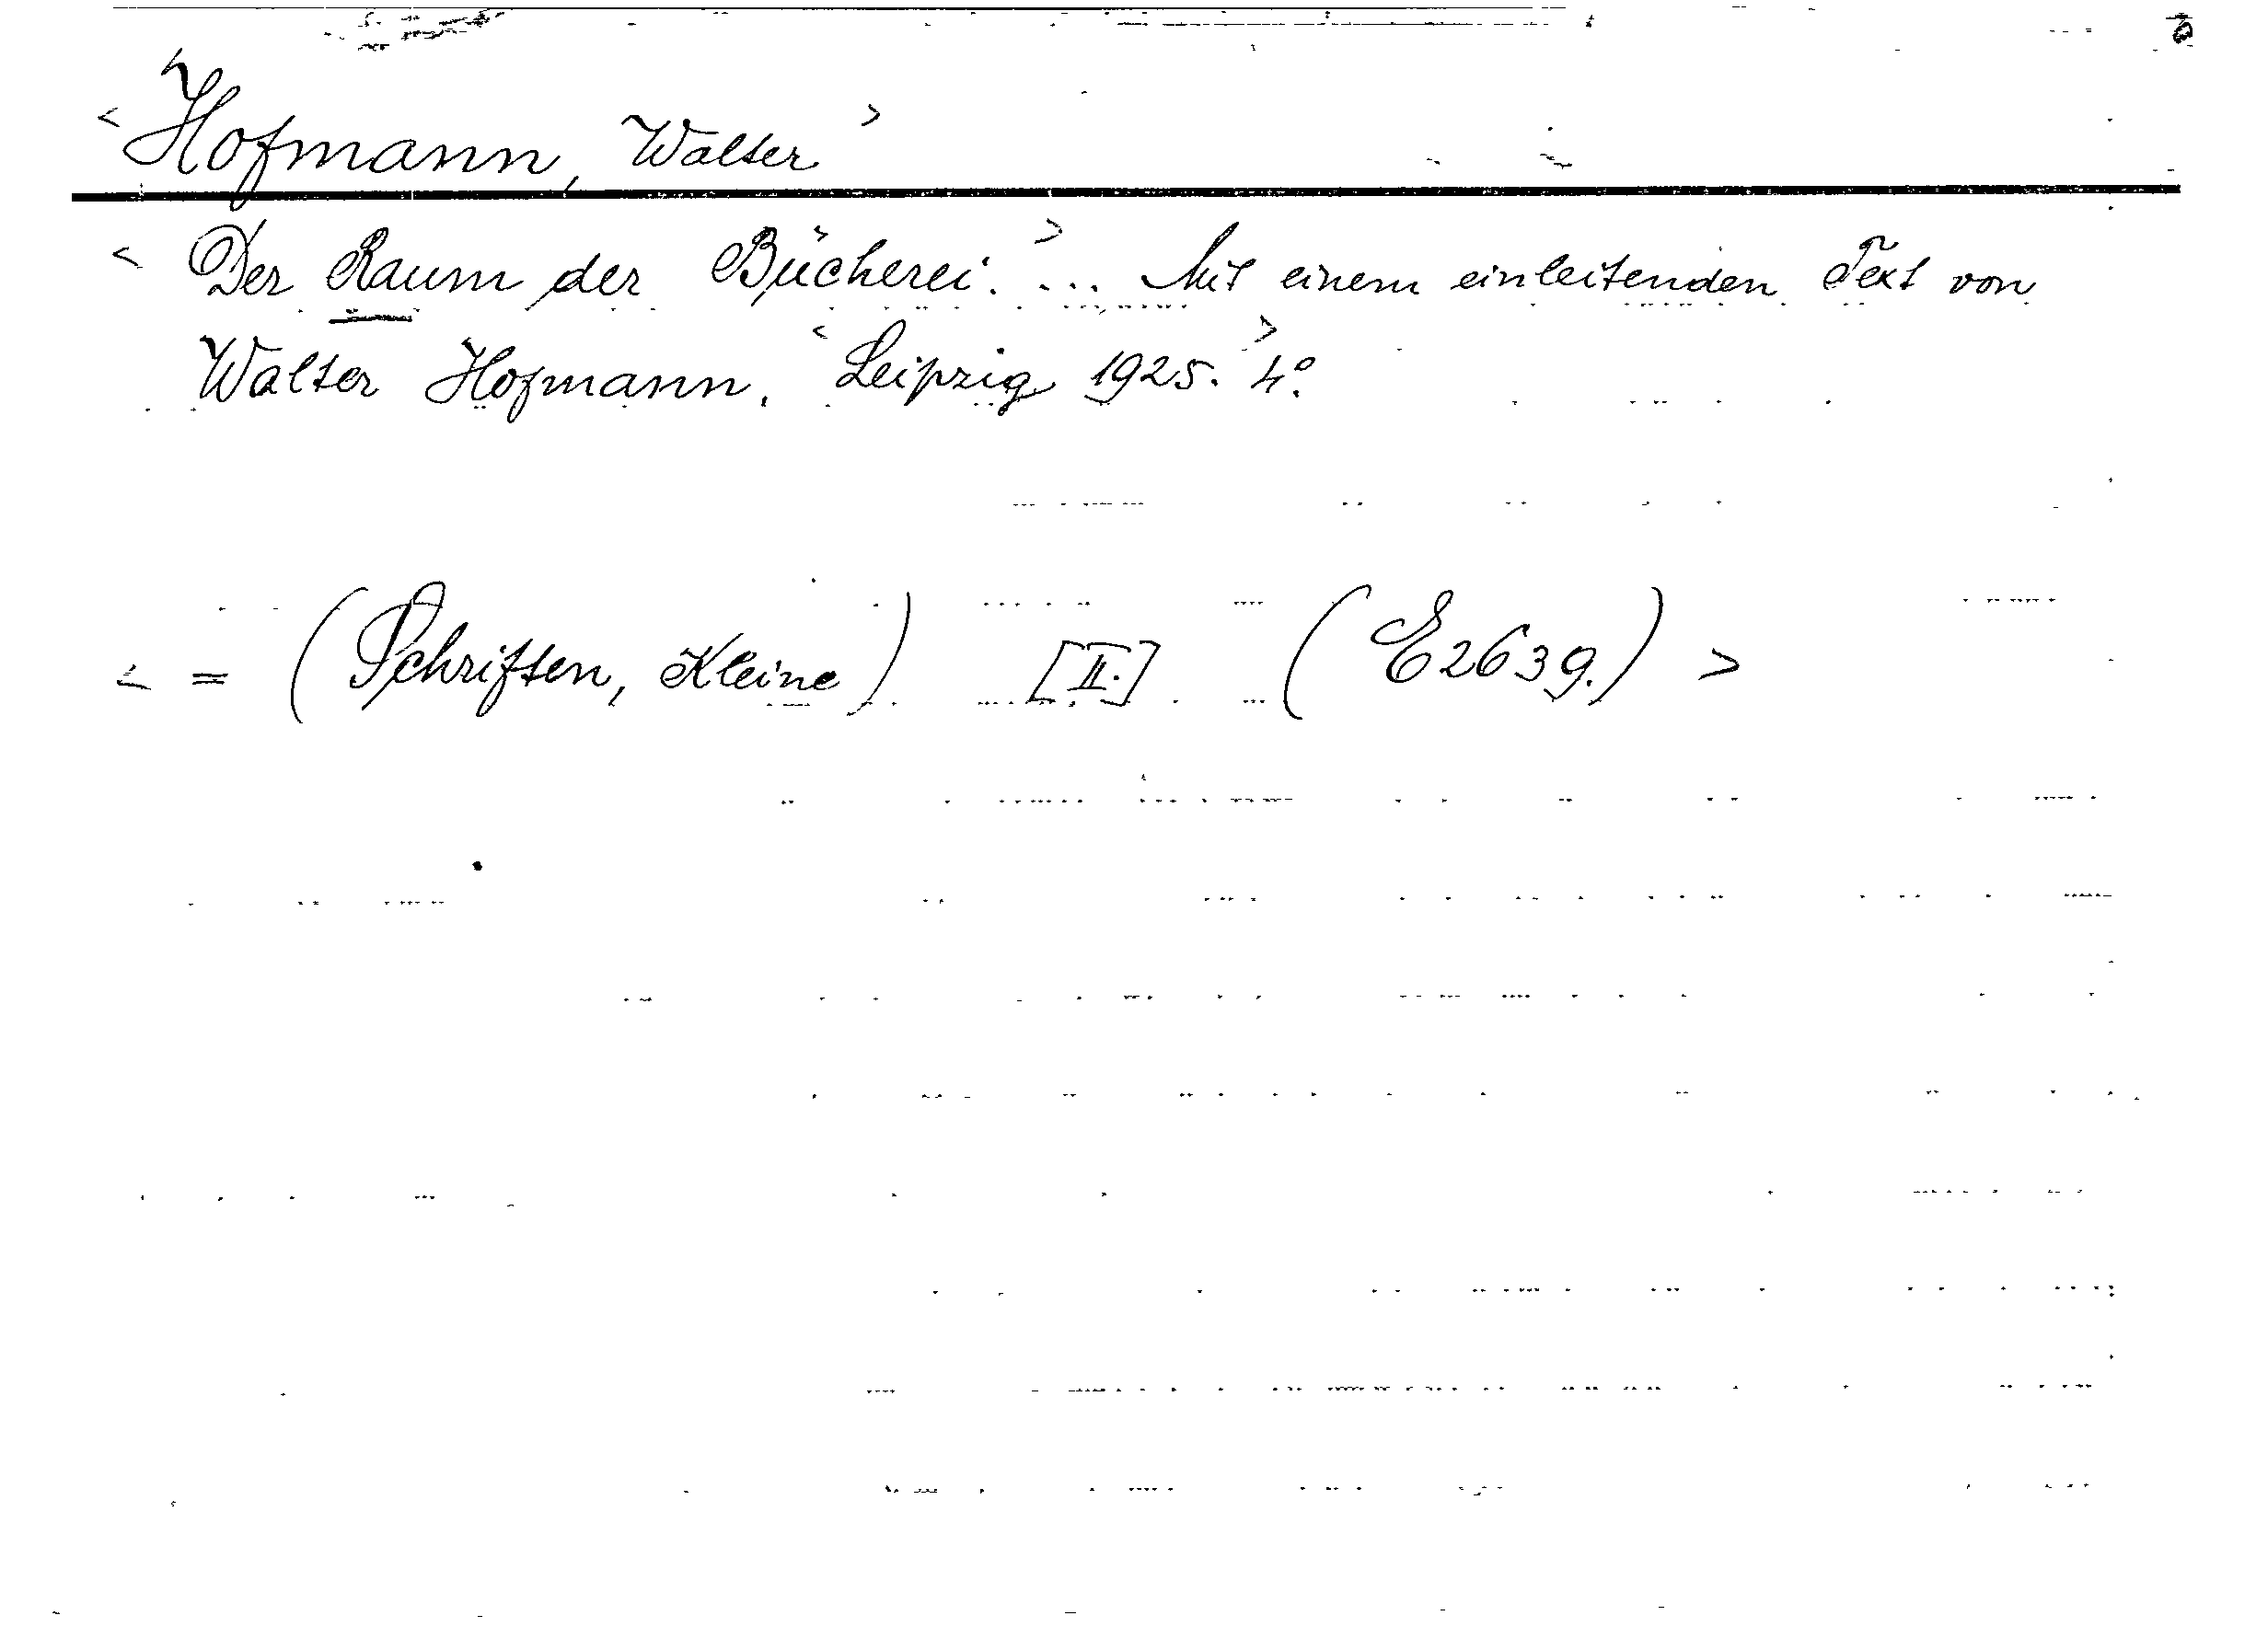 < Hofmann, Walter >
< Der Raum der Bücherei. > ... Mit einem einleitenden Text von
Walter Hofmann. < Leipzig 1925. > 4°.
< = (Schriften, Kleine) [II.] (E2639.) >